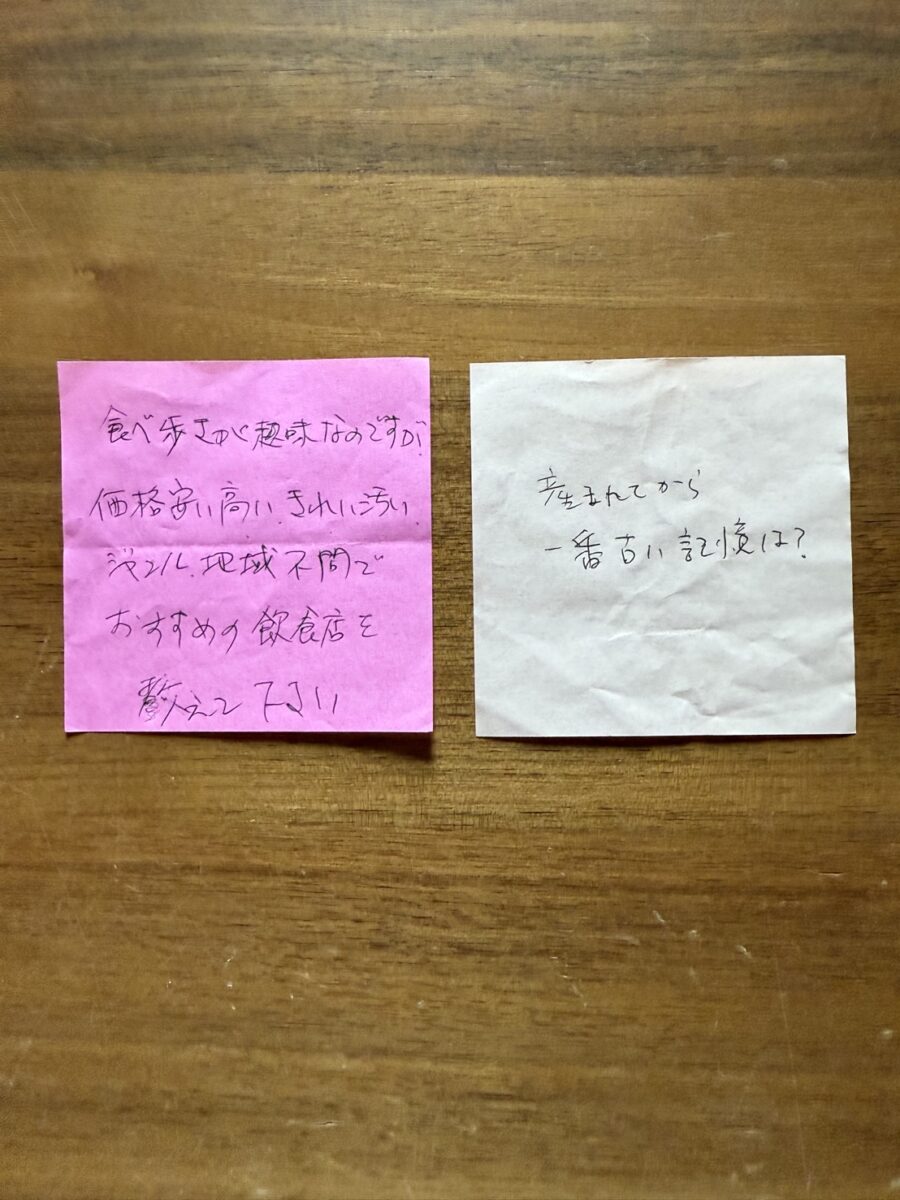 食べ歩きが趣味なのですが、
価格安い高い、きれい汚い、
ジャンル、地域不問で
おすすめの飲食店を
教えて下さい
産まれてから
一番古い記憶は?